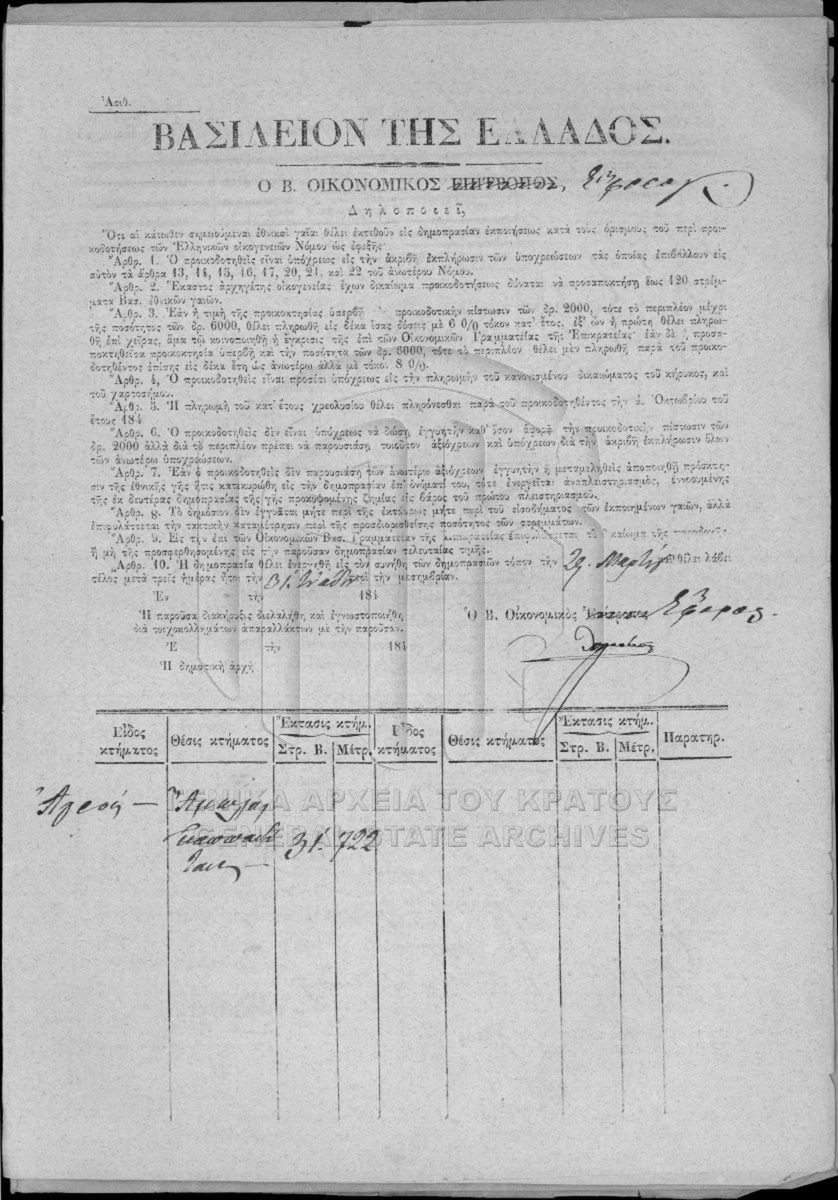 Ἀριθ.
ΒΑΣΙΛΕΙΟΝ ΤΗΣ ΕΛΛΑΔΟΣ.
Ο Β. ΟΙΚΟΝΟΜΙΚΟΣ ΕΠΙΤΡΟΠΟΣ, Ἔφορος
Δηλοποιεῖ,
Ὅτι αἱ κάτωθεν σημειούμεναι ἐθνικαὶ γαῖαι θέλει ἐκτεθοῦν εἰς δημοπρασίαν ἐκποιήσεως κατὰ τοὺς ὁρισμοὺς τοῦ περὶ προι-
κοδοτήσεως τῶν Ἑλληνικῶν οἰκογενειῶν Νόμου ὡς ἐφεξῆς
Ἄρθρ. 1. Ὁ προικοδοτηθεὶς εἶναι ὑπόχρεως εἰς τὴν ἀκριβῆ ἐκπλήρωσιν τῶν ὑποχρεώσεων τὰς ὁποίας ἐπιβάλλουν εἰς
αὐτὸν τὰ ἄρθρα 13, 14, 15, 16, 17, 20, 21, καὶ 22 τοῦ ἀνωτέρω Νόμου.
Ἄρθρ. 2. Ἕκαστος ἀρχηγέτης οἰκογενείας ἔχων δικαίωμα προικοδοτήσεως δύναται νὰ προσαποκτήσῃ ἕως 120 στρέμ-
ματα Βασ. ἐθνικῶν γαιῶν.
Ἄρθρ. 3. Ἐὰν ἡ τιμὴ τῆς προικοκτησίας ὑπερβῇ προικοδοτικὴν πίστωσιν τῶν δρ. 2000, τότε τὸ περιπλέον μέχρι
τῆς ποσότητος τῶν δρ. 6000, θέλει πληρωθῆ εἰς δέκα ἴσας δόσεις μὲ 6 0/0 τόκον κατ' ἔτος, ἐξ' ὧν ἡ πρώτη θέλει πληρω-
θῆ ἐπὶ χεῖρας, ἅμα τῷ κοινοποιηθῇ ἡ ἔγκρισις τῆς ἐπὶ τῶν Οἰκονομικῶν Γραμματείας τῆς Ἐπικρατείας· ἐὰν δὲ ἡ προσα-
ποκτηθεῖσα προικοκτησία ὑπερβῇ καὶ τὴν ποσότητα τῶν δρ. 6000, τότε τὸ περιπλέον θέλει μὲν πληρωθῆ παρὰ τοῦ προικο-
δοτηθέντος ἐπίσης εἰς δέκα ἔτη ὡς ἀνωτέρω ἀλλὰ μὲ τόκον 8 0/0.
Ἄρθρ. 4. Ὁ προικοδοτηθεὶς εἶναι προσέτι ὑπόχρεως εἰς τὴν πληρωμὴν τοῦ κανονισμένου δικαιώματος τοῦ κήρυκος, καὶ
τοῦ χαρτοσήμου.
Ἄρθρ. 5. Ἡ πληρωμὴ τοῦ κατ' ἔτους χρεολυσίου θέλει πληρόνεσθαι παρὰ τοῦ προικοδοτηθέντος τὴν ά. Ὀκτωβρίου τοῦ
ἔτους 184
Ἄρθρ. 6. Ὁ προικοδοτηθεὶς δὲν εἶναι ὑπόχρεως νὰ δώσῃ ἐγγυητὴν καθ' ὅσον ἀφορᾷ τὴν προικοδοτικὴν πίστωσιν τῶν
δρ. 2000 ἀλλὰ διὰ τὸ περιπλέον πρέπει νὰ παρουσιάσῃ τοιοῦτον ἀξιόχρεων καὶ ὑπόχρεων διὰ τὴν ἀκριβῆ ἐκπλήρωσιν ὅλων
τῶν ἀνωτέρω ὑποχρεώσεων.
Ἄρθρ. 7. Ἐὰν ὁ προικοδοτηθεὶς δὲν παρουσιάσῃ τὸν ἀνωτέρω ἀξιόχρεων ἐγγυητὴν ἢ μεταμεληθεὶς ἀποποιηθῇ πρόσκτη-
σιν τῆς ἐθνικῆς γῆς ἥτις κατεκυρώθη εἰς τὴν δημοπρασίαν ἐπ' ὀνόματί του, τότε ἐνεργεῖται ἀναπλειστηριασμὸς, ἐννοουμένης
τῆς ἐκ δευτέρας δημοπρασίας τῆς γῆς προκυψομένης ζημίας εἰς βάρος τοῦ πρώτου πλειστηριασμοῦ.
Ἄρθρ. 8. Τὸ δημόσιον δὲν ἐγγυᾶται μήτε περὶ τῆς ἐκτάσεως μήτε περὶ τοῦ εἰσοδήματος τῶν ἐκποιημένων γαιῶν, ἀλλὰ
ἐπιφυλάττεται τὴν τακτικὴν καταμέτρησιν περὶ τῆς προσδιορισθείσης ποσότητος τῶν στρεμμάτων.
Ἄρθρ. 9. Εἰς τὴν ἐπὶ τῶν Οἰκονομικῶν Βασ. Γραμματείαν τῆς Ἐπικρατείας ἐπιφυλάττεται τὸ δικαίωμα τῆς παραδοχῆς
ἢ μὴ τῆς προσφερθησομένης εἰς τὴν παροῦσαν δημοπρασίαν τελευταίας τιμῆς.
Ἄρθρ. 10. Ἡ δημοπρασία θέλει ἐνεργηθῆ εἰς τὸν συνήθη τῶν δημοπρασιῶν τόπον τὴν 29 Μαρτίου καὶ θέλει λάβει
τέλος μετὰ τρεῖς ἡμέρας ἤτοι τὴν 31 ἰδίου περὶ τὴν μεσημβρίαν.
Ἐν τὴν 184
Ἡ παροῦσα διακήρυξις διελαλήθη καὶ ἐγνωστοποιήθη
διὰ τοιχοκολλημάτων ἀπαραλλάκτων μὲ τὴν παροῦσαν.
Ὁ Β. Οἰκονομικὸς Ἐπίτροπος Ἔφορος
Ἐ τὴν 184
Ἡ δημοτικὴ ἀρχὴ
Εἶδος κτήματος
Θέσις κτήματος
Ἔκτασις κτήμ.
Στρ. Β.
Μέτρ.
Εἶδος κτήματος
Θέσις κτήματος
Ἔκτασις κτήμ.
Στρ. Β.
Μέτρ.
Παρατηρ.
31. 722
ΓΕΝΙΚΑ ΑΡΧΕΙΑ ΤΟΥ ΚΡΑΤΟΥΣ
GENERAL STATE ARCHIVES